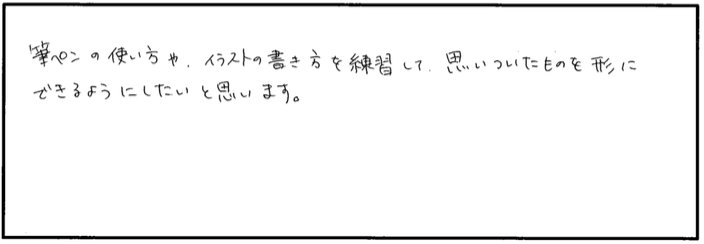 筆ペンの使い方や、イラストの書き方を練習して、思いついたものを形に
できるようにしたいと思います。